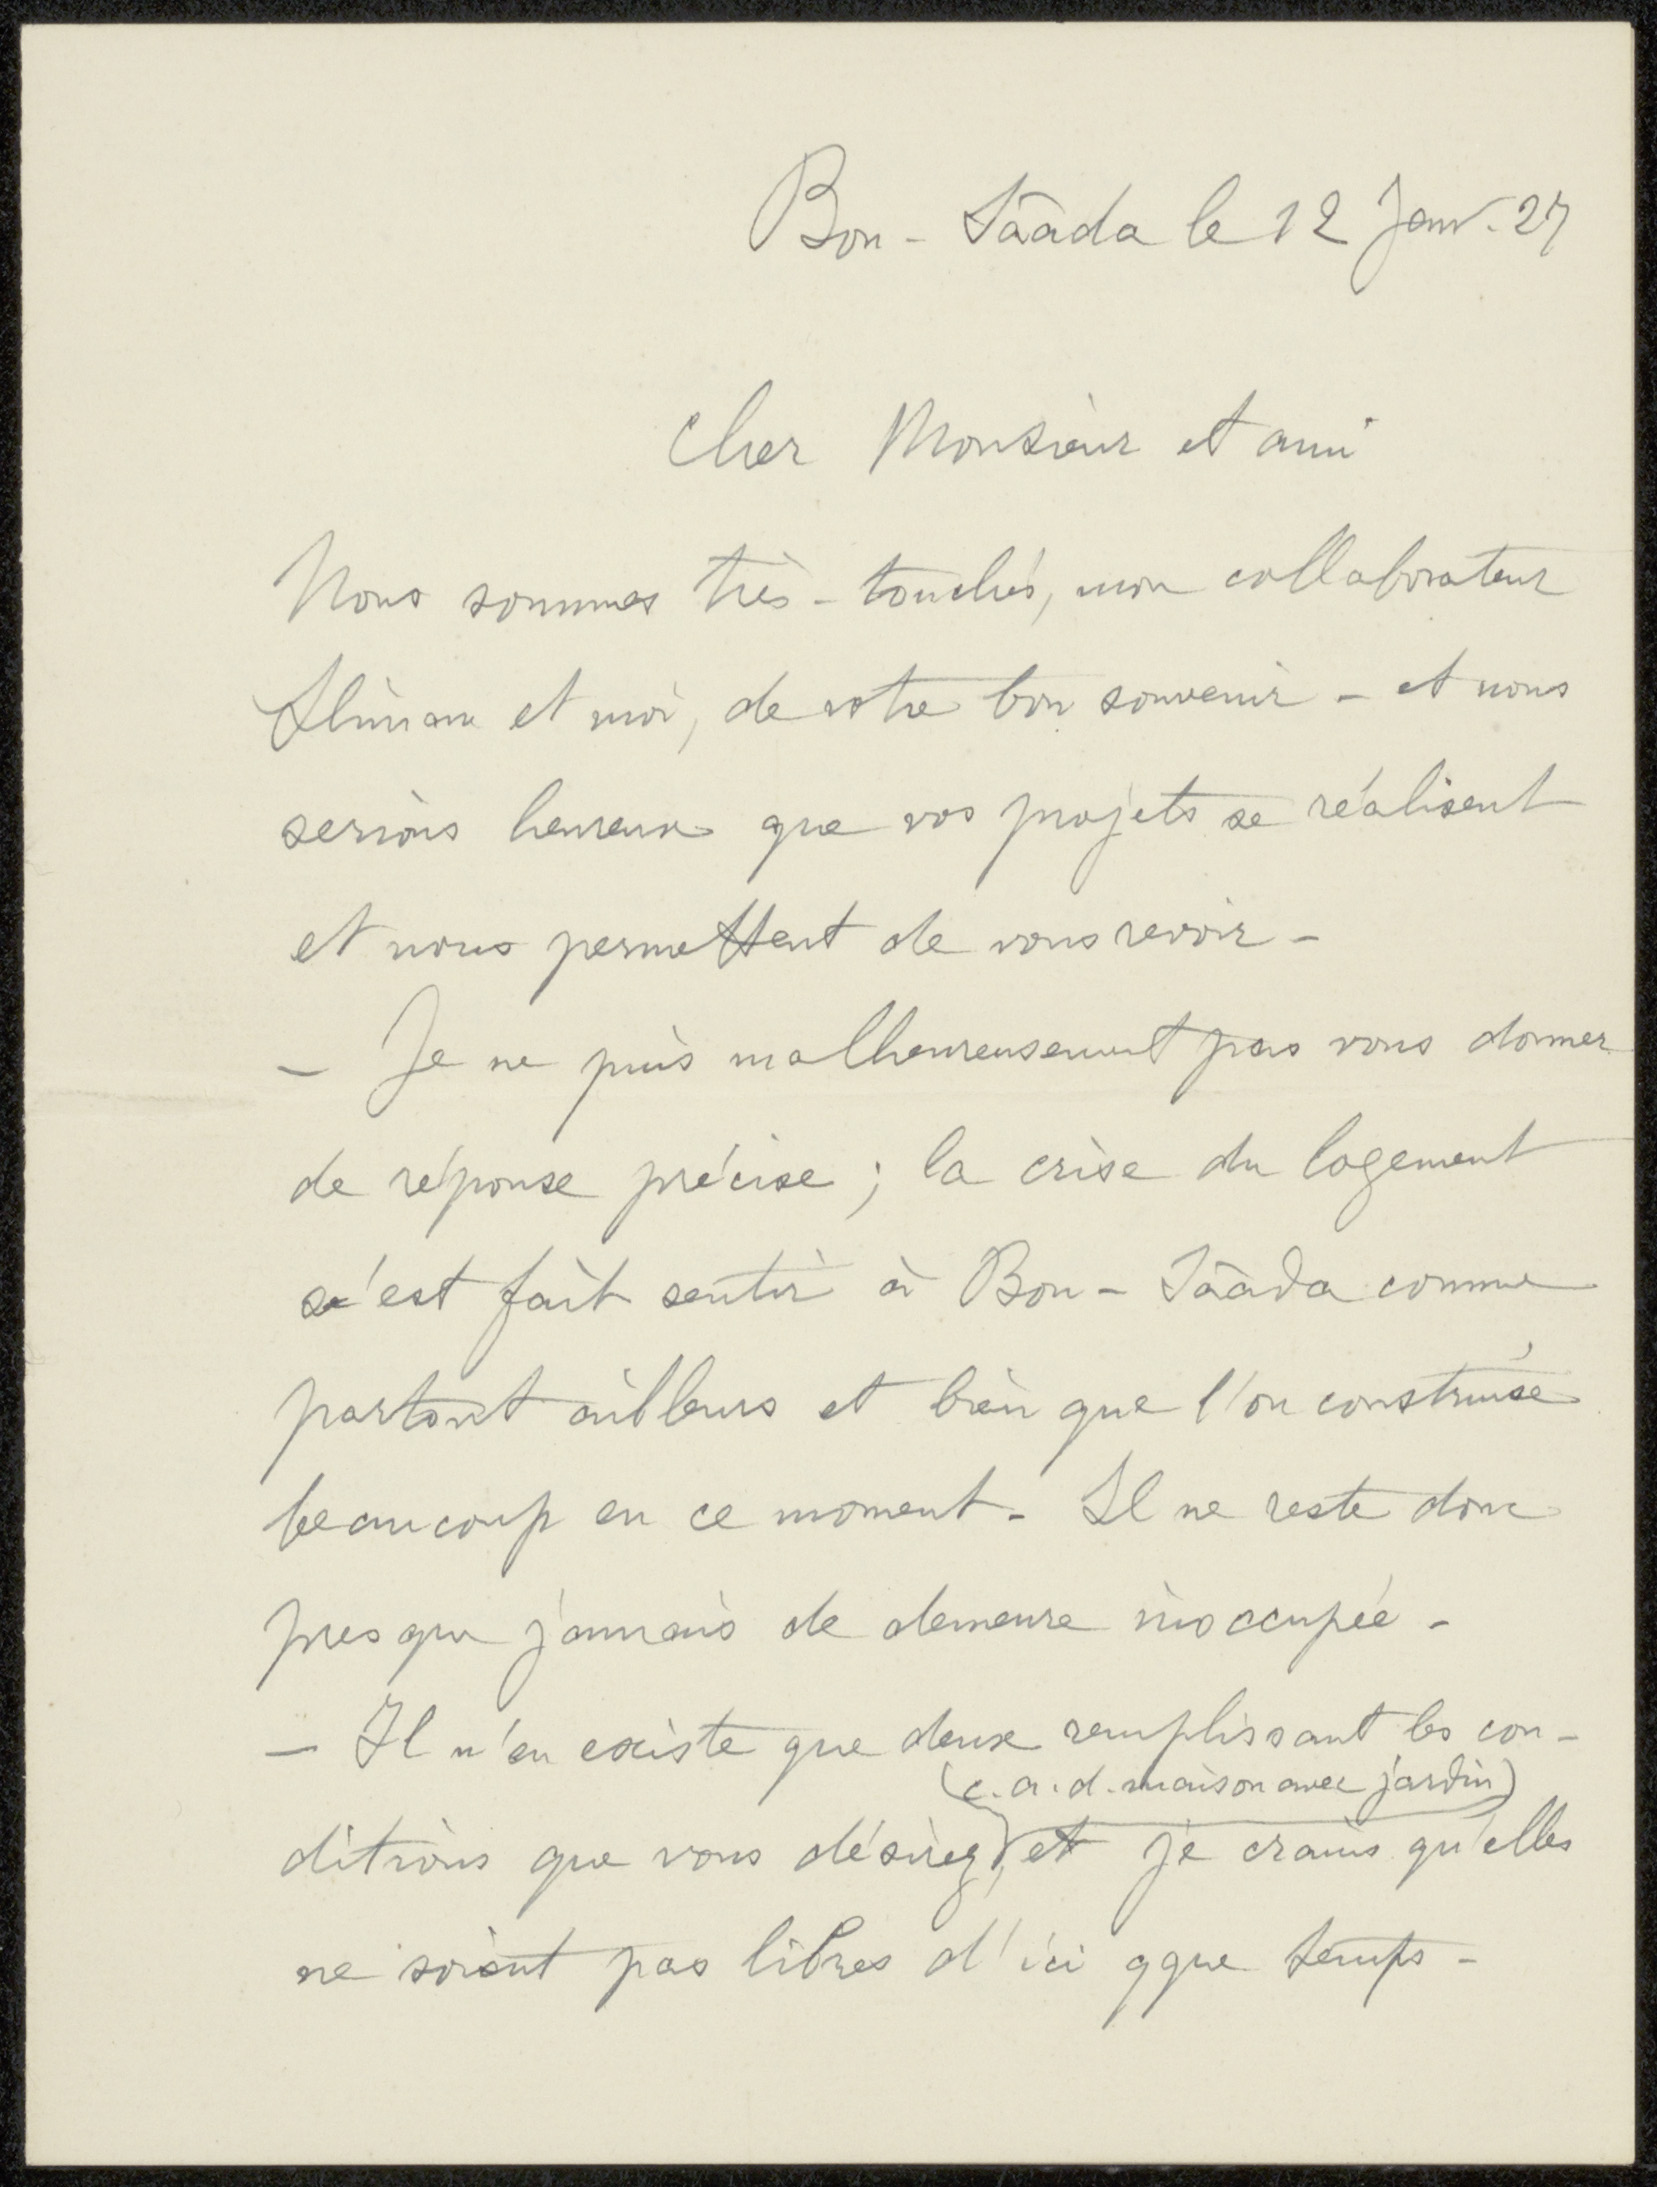 Bou-Sâàda le 12 Janv. 27
Cher Monsieur et ami
Nous sommes très-touchés, mon collaborateur
Sliman et moi, de votre bon souvenir - et nous
serions heureux que vos projets se réalisent
et nous permettent de vous revoir -
- Je ne puis malheureusement pas vous donner
de réponse précise ; la crise du logement
s'est fait sentir à Bou-Sâàda comme
partout ailleurs et bien que l'on construise
beaucoup en ce moment. Il ne reste donc
presque jamais de demeure inoccupée -
- Il n'en existe que deux remplissant les con-
(c.a.d. maison avec jardin)
ditions que vous désirez, et je crains qu'elles
ne soient pas libres d'ici qque temps -